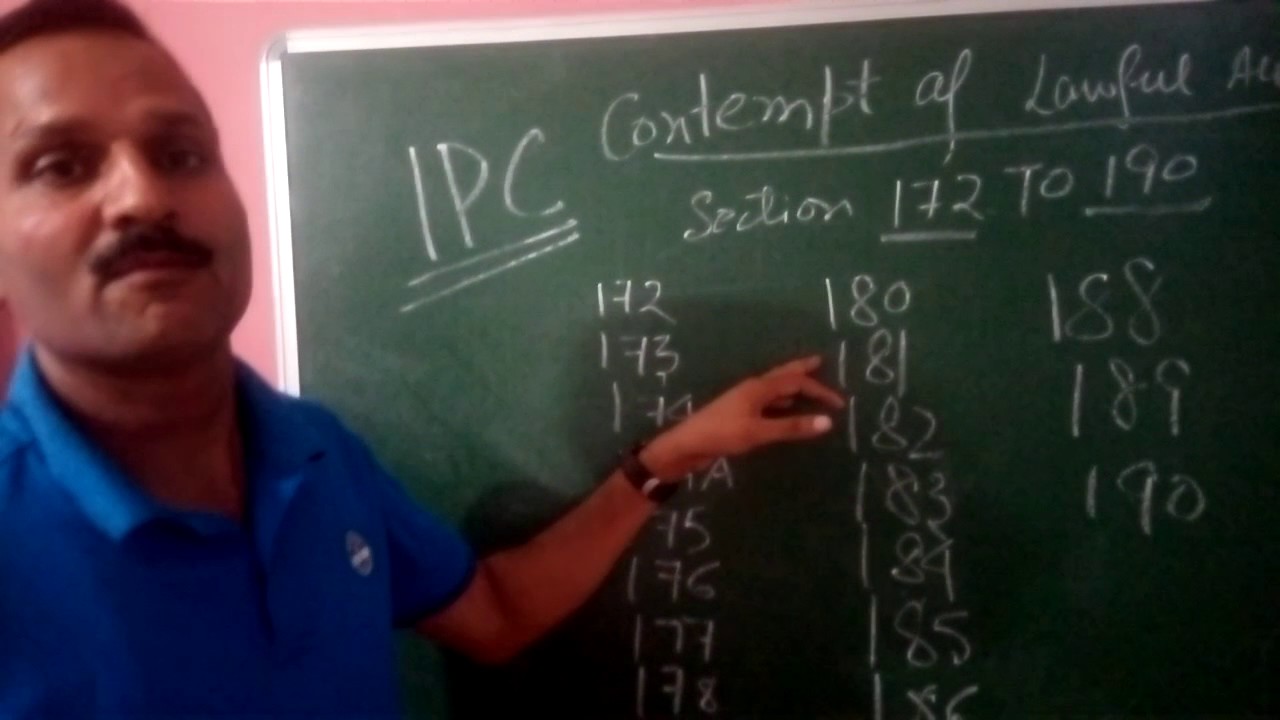 IPC
Contempt of Lawful
Section 172 TO 190
172
173
174
75
176
177
178
180
181
182
183
184
185
186
188
189
190